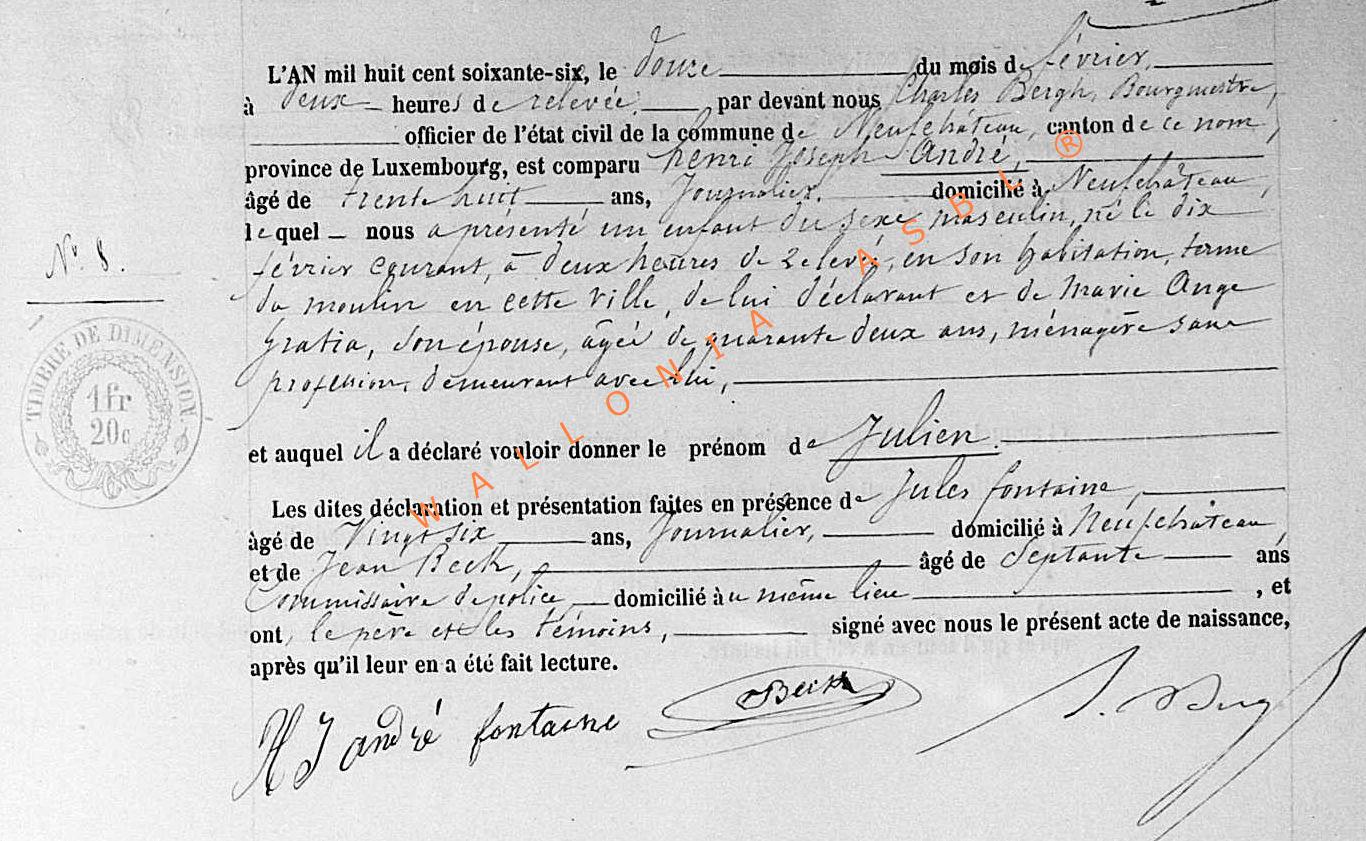 L'AN mil huit cent soixante-six, le douze du mois de février,
à deux heures de relevée, par devant nous Charles Bergh, Bourgmestre,
officier de l'état civil de la commune de Neufchâteau, canton de ce nom,
province de Luxembourg, est comparu henri Joseph André,
âgé de trente huit ans, Journalier, domicilié à Neufchâteau,
lequel nous a présenté un enfant du sexe masculin, né le dix
février courant, à deux heures de relevée, en son habitation, terme
du moulin en cette ville, de lui déclarant et de Marie Ange
Gratia, son épouse, âgée de quarante deux ans, ménagère sans
profession, demeurant avec lui,
N°. 8.
TIMBRE DE DIMENSION.
1 fr
20 c
et auquel il a déclaré vouloir donner le prénom de Julien.
Les dites déclaration et présentation faites en présence de Jules fontaine,
âgé de Vingt six ans, Journalier, domicilié à Neufchâteau,
et de Jean Beck, âgé de Septante ans
Commissaire de police domicilié au même lieu, et
ont, le père et les témoins, signé avec nous le présent acte de naissance,
après qu'il leur en a été fait lecture.
H J andré fontaine Beck
WALLONIA ASBL ®